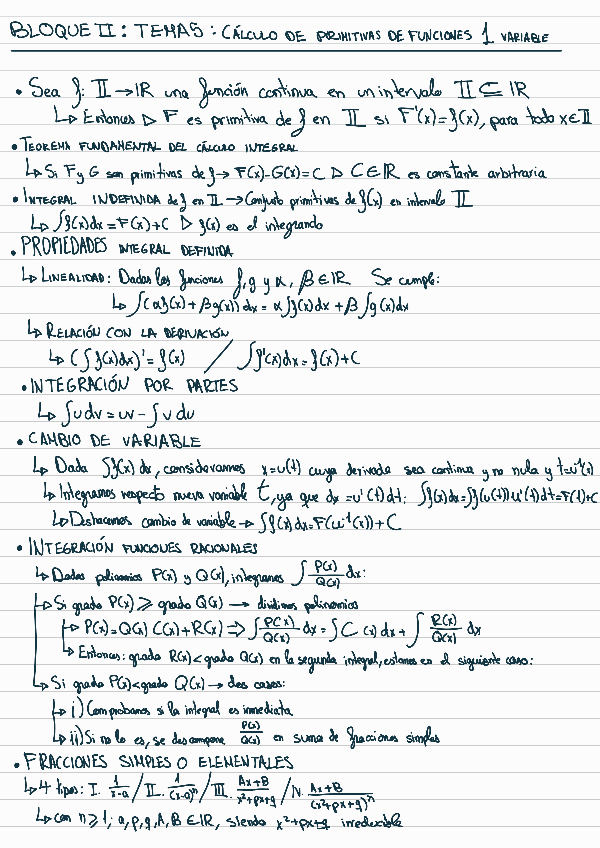 BLOQUE II: TEMA 5: CÁLCULO DE PRIMITIVAS DE FUNCIONES 1 VARIABLE
• Sea f: II → IR una función continua en un intervalo II ⊆ IR
↳ Entonces ▷ F es primitiva de f en II si F'(x)=f(x), para todo x∈II
• TEOREMA FUNDAMENTAL DEL CÁLCULO INTEGRAL
↳ Si F y G son primitivas de f → F(x)-G(x)=C ▷ C∈IR es constante arbitraria
• INTEGRAL INDEFINIDA de f en II → Conjunto primitivas de f(x) en intervalo II
↳ ∫f(x)dx = F(x)+C ▷ f(x) es el integrando
• PROPIEDADES INTEGRAL DEFINIDA
↳ LINEALIDAD: Dadas las funciones f, g y α, β∈IR Se cumple:
↳ ∫(αf(x)+βg(x))dx = α∫f(x)dx + β∫g(x)dx
↳ RELACIÓN CON LA DERIVACIÓN
↳ (∫f(x)dx)' = f(x) / ∫f'(x)dx = f(x)+C
• INTEGRACIÓN POR PARTES
↳ ∫udv = uv - ∫vdu
• CAMBIO DE VARIABLE
↳ Dada ∫f(x)dx, consideramos x=u(t) cuya derivada sea continua y no nula y t=u⁻¹(x)
↳ Integramos respecto nueva variable t, ya que dx=u'(t)dt: ∫f(x)dx=∫f(u(t))u'(t)dt=F(t)+C
↳ Deshacemos cambio de variable → ∫f(x)dx=F(u⁻¹(x))+C
• INTEGRACIÓN FUNCIONES RACIONALES
↳ Dados polinomios P(x) y Q(x), integramos ∫ P(x)/Q(x) dx:
↳ Si grado P(x) ≥ grado Q(x) → dividimos polinomios
↳ P(x)=Q(x) C(x)+R(x) ⇒ ∫ P(x)/Q(x) dx = ∫C(x)dx + ∫ R(x)/Q(x) dx
↳ Entonces: grado R(x)<grado Q(x) en la segunda integral, estamos en el siguiente caso:
↳ Si grado P(x)<grado Q(x) → dos casos:
↳ i) Comprobamos si la integral es inmediata
↳ ii) Si no lo es, se descompone P(x)/Q(x) en suma de fracciones simples
• FRACCIONES SIMPLES O ELEMENTALES
↳ 4 tipos: I. 1/(x-a) / II. 1/(x-a)ⁿ / III. (Ax+B)/(x²+px+q) / IV. (Ax+B)/(x²+px+q)ⁿ
↳ con n≥1; a,p,q,A,B∈IR, siendo x²+px+q irreducible